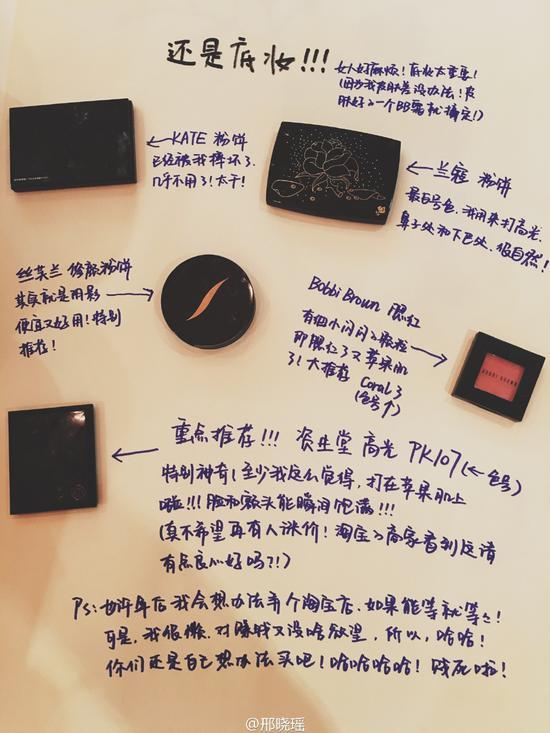 还是底妆!!!
女人好麻烦！底妆太重要！
(因为我皮肤差没办法！皮
肤好的一个BB霜就搞定!)
← KATE 粉饼
已经被我摔坏了.
几乎不用了！太干！
← 兰蔻 粉饼
最白号色,我用来打高光.
鼻子处和下巴处.很自然！
丝芙兰 修颜粉饼
其实就是阴影
便宜又好用！特别
推荐！
Bobbi Brown 腮红
有细小闪闪的颗粒
即腮红了又苹果肌
了！大推荐 Coral 3
(色号↑)
BOBBI BROWN
重点推荐!!! 资生堂 高光 PK107(←色号)
特别神奇！至少我这么觉得,打在苹果肌上
啦!!! 脸和额头能瞬间饱满!!!
(真不希望再有人涨价！淘宝的商家看到这请
有点良心好吗?!)
Ps: 也许年后我会想办法弄个淘宝店.如果能等就等等!
可是,我很懒.对赚钱又没啥欲望,所以,哈哈!
你们还是自己想办法买吧！哈哈哈哈！贱死啦！
@邢晓瑶